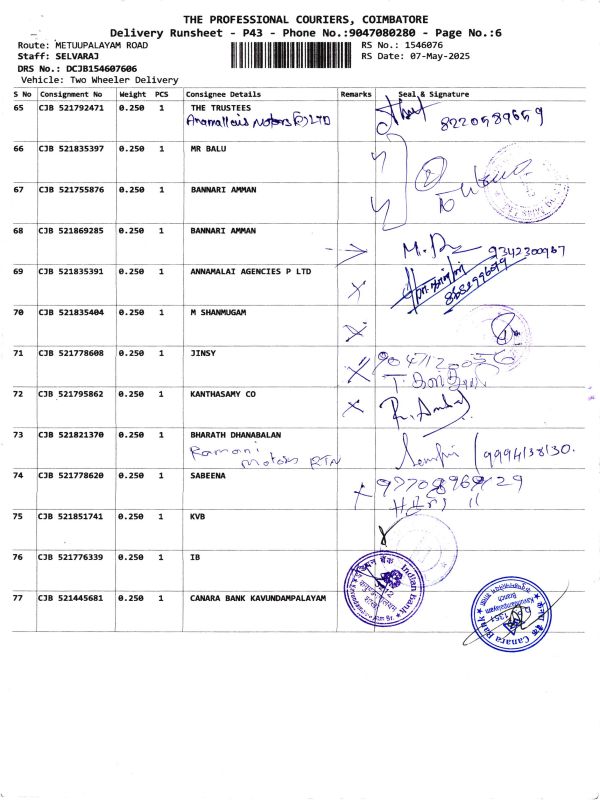 THE PROFESSIONAL COURIERS, COIMBATORE
Delivery Runsheet - P43 - Phone No.:9047080280 - Page No.:6
Route: METUUPALAYAM ROAD RS No.: 1546076
Staff: SELVARAJ RS Date: 07-May-2025
DRS No.: DCJB154607606
Vehicle: Two Wheeler Delivery
S No Consignment No Weight PCS Consignee Details Remarks Seal & Signature
65 CJB 521792471 0.250 1 THE TRUSTEES
Anamallais Motors (P) LTD 8220589659
66 CJB 521835397 0.250 1 MR BALU
2
67 CJB 521755876 0.250 1 BANNARI AMMAN
68 CJB 521869285 0.250 1 BANNARI AMMAN
9342300967
69 CJB 521835391 0.250 1 ANNAMALAI AGENCIES P LTD
70 CJB 521835404 0.250 1 M SHANMUGAM
71 CJB 521778608 0.250 1 JINSY
72 CJB 521795862 0.250 1 KANTHASAMY CO
73 CJB 521821370 0.250 1 BHARATH DHANABALAN
Ramani Motors RTN 9994138130.
74 CJB 521778620 0.250 1 SABEENA
75 CJB 521851741 0.250 1 KVB
76 CJB 521776339 0.250 1 IB
Indian Bank
77 CJB 521445681 0.250 1 CANARA BANK KAVUNDAMPALAYAM
Kavundampalayam
Branch
Canara Bank